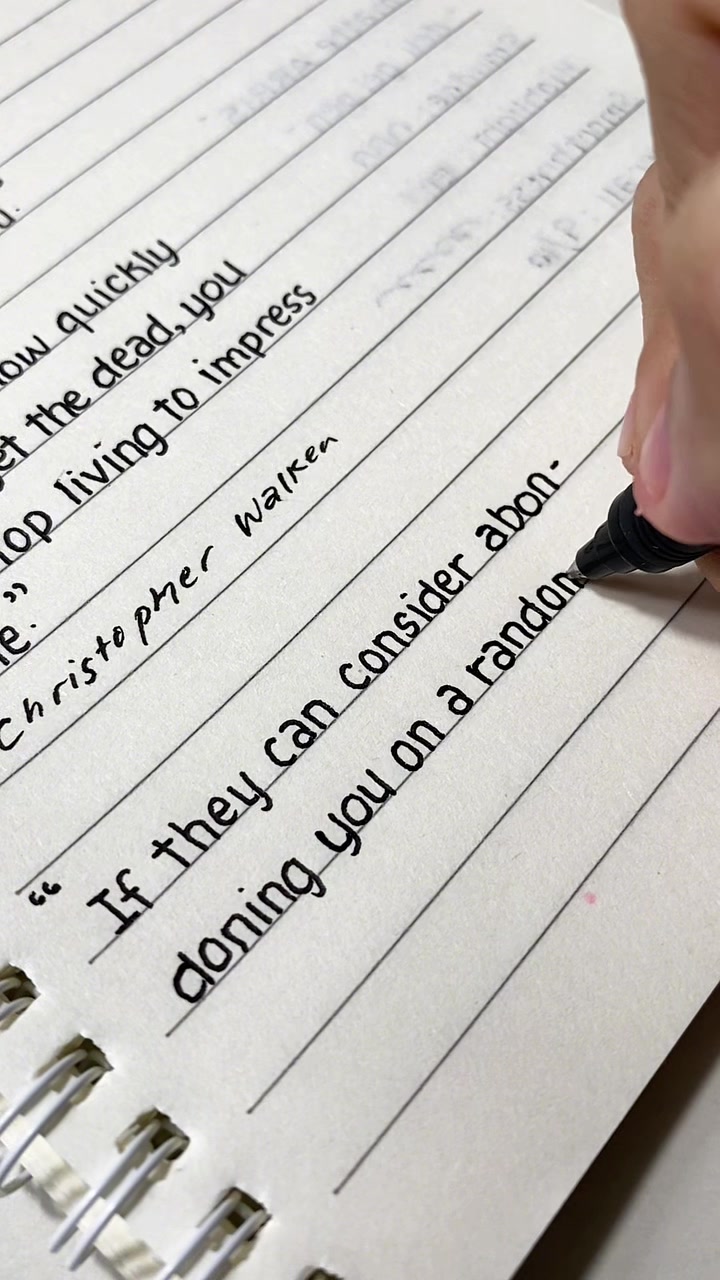 ow quickly
et the dead, you
op living to impress
e.”
Christopher Walken
“ If they can consider abon-
doning you on a random